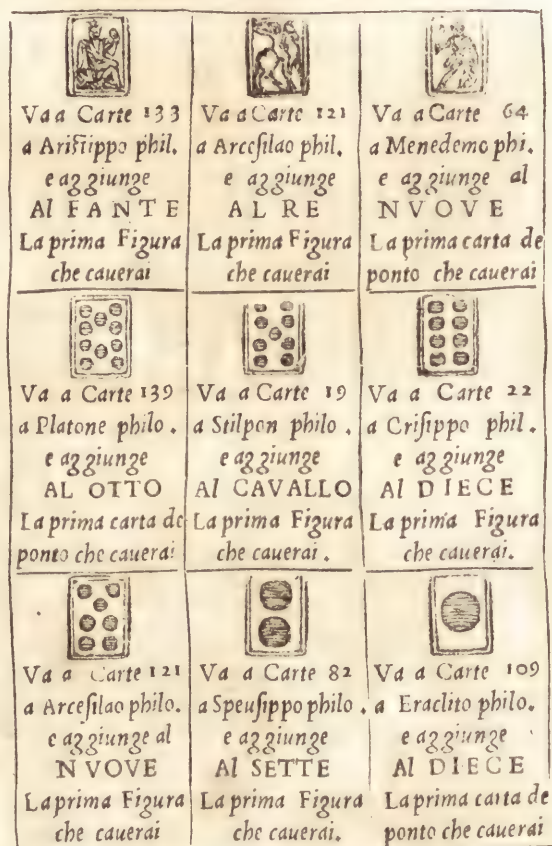 Va a Carte 133
a Ariſtippo phil.
e aggiunge
Al FANTE
La prima Figura
che cauerai
Va a Carte 121
a Arceſilao phil.
e aggiunge
AL RE
La prima Figura
che cauerai
Va a Carte 64
a Menedemo phi.
e aggiunge al
NVOVE
La prima carta de
ponto che cauerai
Va a Carte 139
a Platone philo.
e aggiunge
AL OTTO
La prima carta de
ponto che cauerai
Va a Carte 19
a Stilpon philo.
e aggiunge
Al CAVALLO
La prima Figura
che cauerai.
Va a Carte 22
a Criſippo phil.
e aggiunge
Al DIECE
La prima Figura
che cauerai.
Va a Carte 121
a Arceſilao philo.
e aggiunge al
NVOVE
La prima Figura
che cauerai
Va a Carte 82
a Speuſippo philo.
e aggiunge
Al SETTE
La prima Figura
che cauerai.
Va a Carte 109
a Eraclito philo.
e aggiunge
Al DIECE
La prima carta de
ponto che cauerai